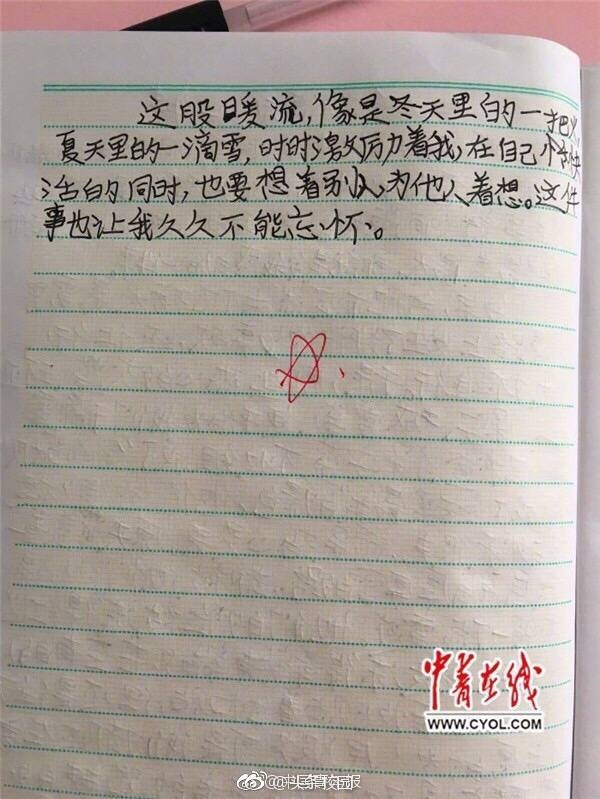 这股暖流,像是冬天里的一把火
夏天里的一滴雪,时时激励着我,在自己愉快
活的同时,也要想着别人,为他人着想。这件
事也让我久久不能忘怀。
中青在线
WWW.CYOL.COM